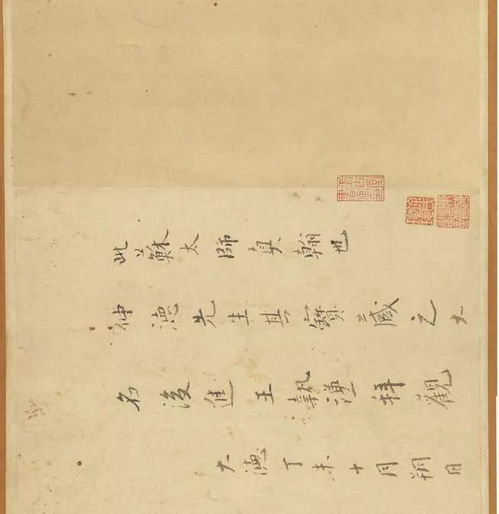 此蘇太師真翰也
仲德先生其寳藏之大
名後進王執謙拜觀
大德丁未十月朔日